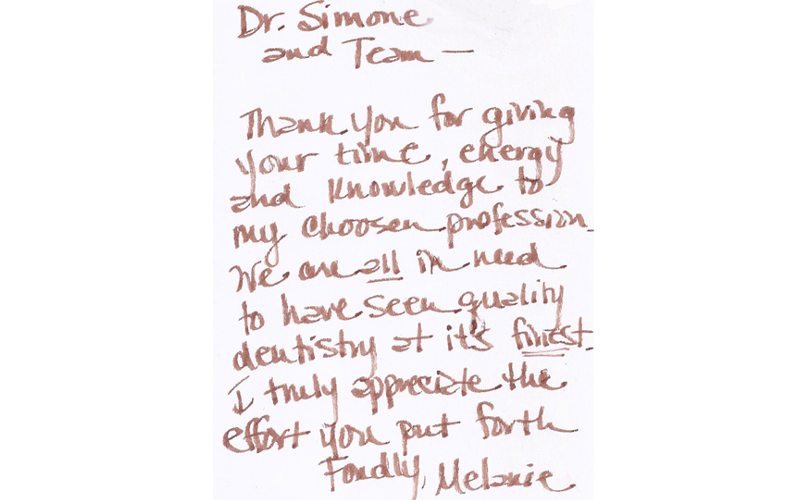 Dr. Simone
and Team —
Thank you for giving
your time, energy
and knowledge to
my choosen profession.
We are all in need
to have seen quality
dentistry at it's finest.
I truly appreciate the
effort you put forth
Fondly, Melanie